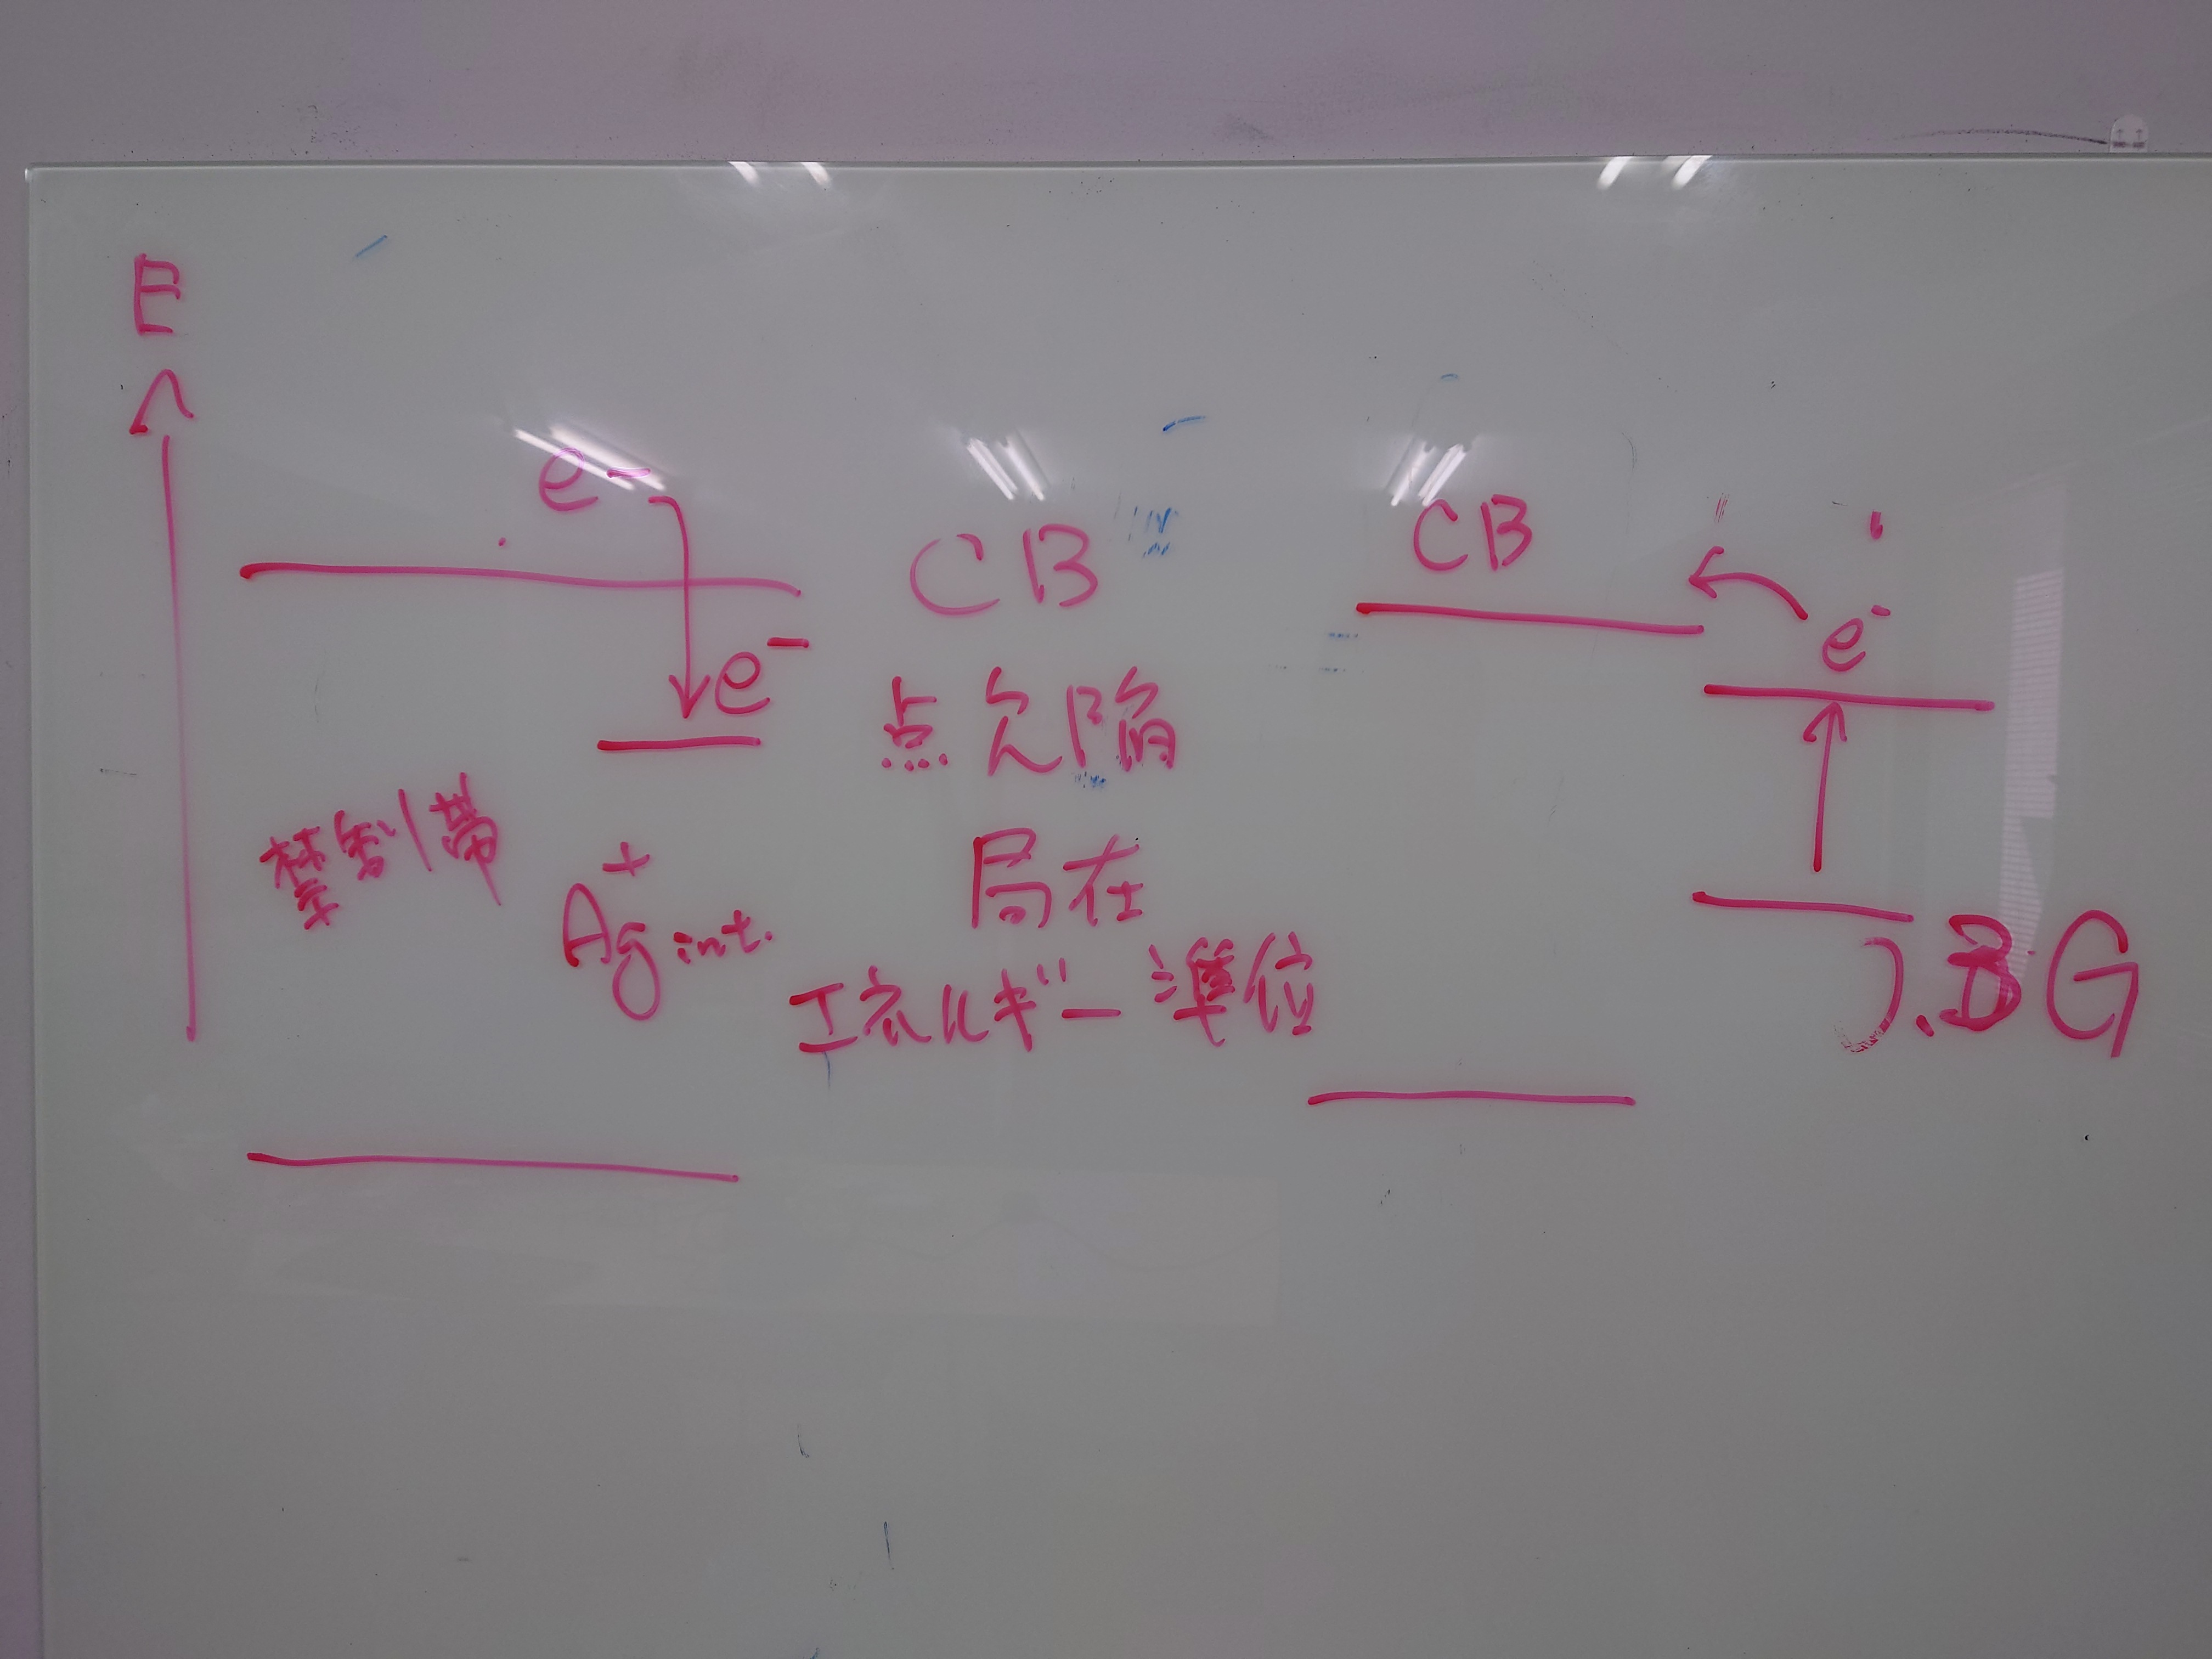 E
e⁻
CB
CB
e⁻
e⁻
点欠陥
禁制帯
Ag⁺int.
局在
エネルギー準位
J.BG